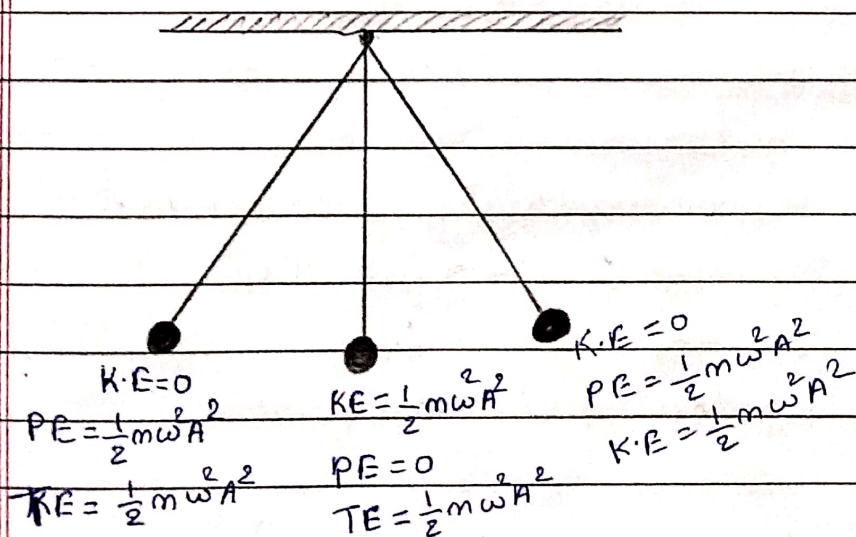 K.E=0
PE=1/2mω²A²
TE=1/2mω²A²
KE=1/2mω²A²
PE=0
TE=1/2mω²A²
K.E=0
PE=1/2mω²A²
K.E=1/2mω²A²